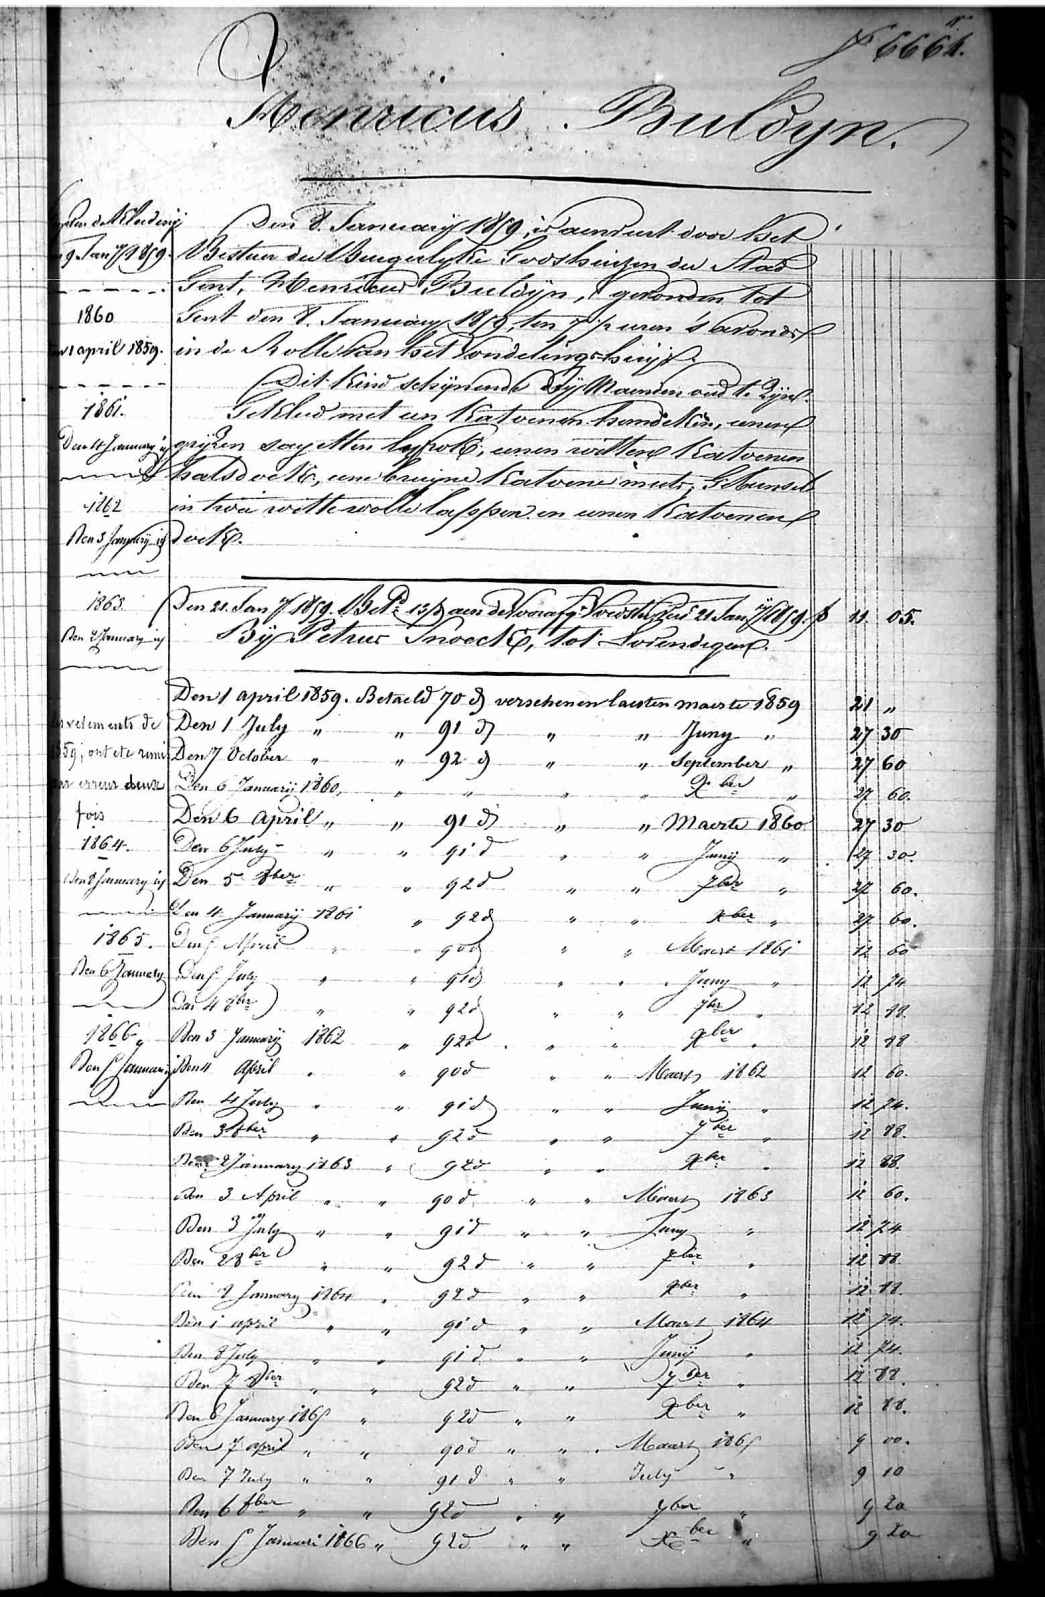 N° 6664.
Henricus Buldyn.
Den 8. January 1859, is aenveert door het
Bestuer der Burgerlyke Godshuizen der Stad
Gent, Henricus Buldyn, gevonden tot
Gent den 8. January 1859, ten 7 uren 's avonds
in de Rolle van het Vondelingshuys.
Dit kind schynende dry Maenden oud te zyn.
Gekleed met een katoenen hemdeken, eenen
gryzen sayetten, eenen witten katoenen
halsdoek, eene bruyne katoene muts, Gebunseld
in twee witte wolle lappen en eenen katoenen
doek.
de Kleedery
9 Jany 1859.
1860
1 april 1859.
1861.
Den 4 January
1862
Den 3 January
1863.
Den 2 January
vetements de
1859, ont ete remi
erreur deux
fois
1864.
Den 8 January
1865.
Den 6 January
1866
Den 5 Januari
Den 21. Jany 1859. Bet. 13 d aen de 21 Jany 1859. f 11 05.
By Petrus Snoeck, tot Lovendegem.
Den 1 april 1859. Betaeld 70 d verschenen laesten maerte 1859 21 "
Den 1 July " " 91 d " " Juny " 27 30
Den 7 October " " 92 d " " September " 27 60
Den 6 January 1860, " " " " Xber " 27 60.
Den 6 April " " 91 d " " Maerte 1860 27 30
Den 6 July " " 91 d " " Juny " 27 30.
Den 5 8ber " " 92 d " " 7ber " 27 60.
Den 4 January 1861 " 92 d " " Xber " 27 60.
Den 5 April " " 90 d " " Maert 1861 12 60
Den 5 July " " 91 d " " Juny " 12 74
Den 4 8ber " " 92 d " " 7ber " 12 88.
Den 3 January 1862 " 92 d " " Xber " 12 88
Den 4 April " " 90 d " " Maert 1862 12 60.
Den 4 July " " 91 d " " Juny " 12 74.
Den 3 8ber " " 92 d " " 7ber " 12 88.
Den 2 January 1863 " 92 d " " Xber " 12 88.
Den 3 April " " 90 d " " Maert 1863 12 60.
Den 3 July " " 91 d " " Juny " 12 74
Den 2 8ber " " 92 d " " 7ber " 12 88.
Den 8 January 1864 " 92 d " " Xber " 12 88.
Den 1 april " " 91 d " " Maert 1864 12 74.
Den 8 July " " 91 d " " Juny " 12 74.
Den 7 8ber " " 92 d " " 7ber " 12 88.
Den 6 January 1865 " 92 d " " Xber " 12 88.
Den 7 april " " 90 d " " Maart 1865 9 00.
Den 7 July " " 91 d " " July " 9 10
Den 6 8ber " " 92 d " " 7ber " 9 20
Den 5 Januari 1866 " 92 d " " Xber " 9 20